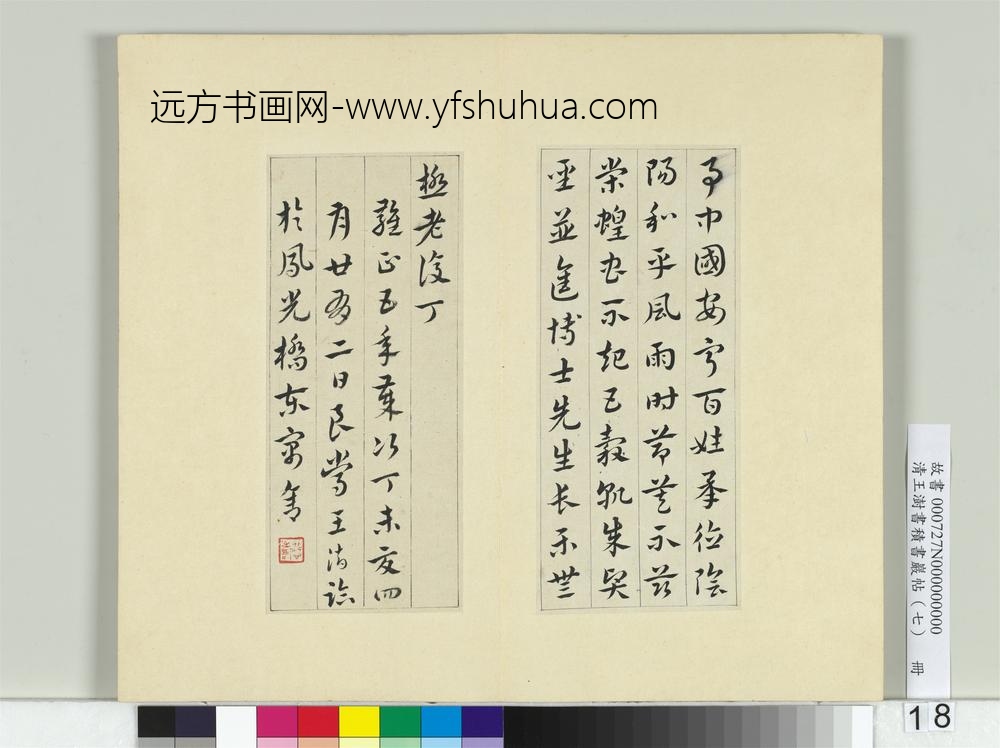 远方书画网-www.yfshuhua.com
事中國安寧百姓承德陰
陽和平風雨时節莫不茲
榮蝗蟲不起五穀孰成賢
聖並進博士先生長樂無
極老復丁
雍正五年歲次丁未夏四
月廿有二日良常王澍臨
於鳳光橋東寓舍
故書 000727N000000000
清王澍書積書巖帖（七） 冊
18